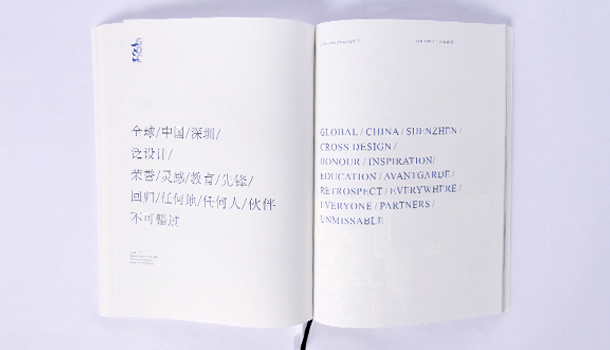 全球/中国/深圳/
泛设计/
荣誉/灵感/教育/先锋/
回归/任何地/任何人/伙伴
不可错过
GLOBAL / CHINA / SHENZHEN /
CROSS DESIGN /
HONOUR / INSPIRATION/
EDUCATION / AVANTGARDE /
RETROSPECT / EVERYWHERE /
EVERYONE / PARTNERS /
UNMISSABLE